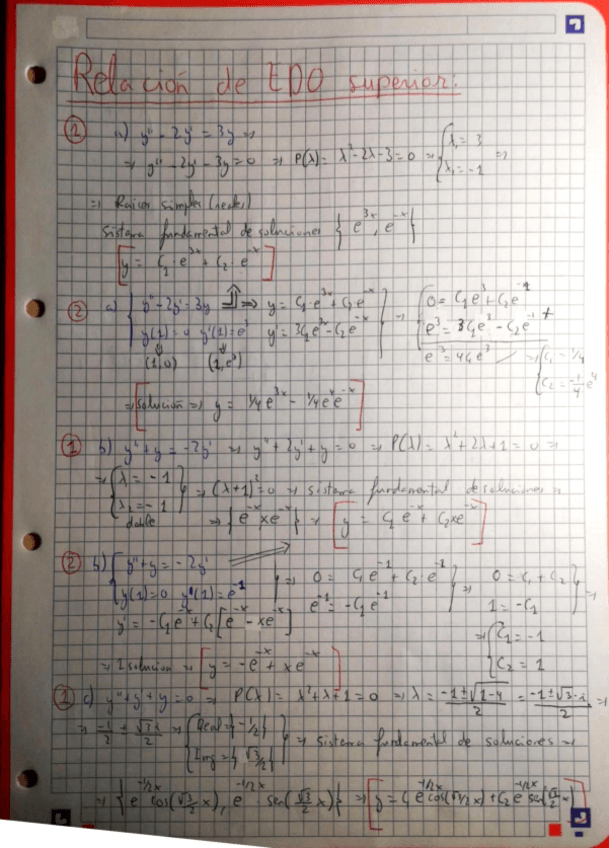 Relación de EDO superior:
② a) y'' - 2y' = 3y ⇒
⇒ y'' - 2y' - 3y = 0 ⇒ P(λ) = λ² - 2λ - 3 = 0 ⇒ { λ₁ = 3 λ₂ = -1 ⇒
⇒ Raíces simples (reales)
Sistema fundamental de soluciones { e^{3x}, e^{-x} }
[ y = C₁·e^{3x} + C₂·e^{-x} ]
② a) { y'' - 2y' = 3y ⇒ y = C₁·e^{3x} + C₂e^{-x} } ⇒ { 0 = C₁e³ + C₂e^{-1}
y(1) = 0 y'(1) = e³ y' = 3C₁e^{3x} - C₂e^{-x} e³ = 3C₁e³ - C₂e^{-1} +
(1,0) (1,e³) e³ = 4C₁e³ ⇒ { C₁ = 1/4
C₂ = -1/4 e⁴
⇒ [ solución ⇒ y = 1/4 e^{3x} - 1/4 e⁴e^{-x} ]
① b) y'' + y = -2y' ⇒ y'' + 2y' + y = 0 ⇒ P(λ) = λ² + 2λ + 1 = 0 ⇒
⇒ { λ₁ = -1 λ₂ = -1 doble } ⇒ (λ+1)² = 0 ⇒ sistema fundamental de soluciones ⇒
⇒ { e^{-x}, xe^{-x} } ⇒ [ y = C₁e^{-x} + C₂xe^{-x} ]
② b) { y'' + y = -2y' } ⇒ 0 = C₁e^{-1} + C₂e^{-1} } ⇒ 0 = C₁ + C₂ } ⇒
y(1) = 0 y'(1) = e^{-1} e^{-1} = -C₁e^{-1} 1 = -C₁
y' = -C₁e^{-x} + C₂[e^{-x} - xe^{-x}] ⇒ { C₁ = -1
C₂ = 1
⇒ 1 solución ⇒ [ y = -e^{-x} + xe^{-x} ]
① c) y'' + y' + y = 0 ⇒ P(λ) = λ² + λ + 1 = 0 ⇒ λ = (-1 ± √1-4)/2 = (-1 ± √3·i)/2 ⇒
⇒ -1/2 ± √3i/2 ⇒ { Real = {-1/2} Img = {√3/2} } ⇒ Sistema fundamental de soluciones ⇒
⇒ { e^{-1/2x} cos(√3/2 x), e^{-1/2x} sen(√3/2 x) } ⇒ [ y = C₁e^{-1/2x} cos(√3/2 x) + C₂e^{-1/2x} sen(√3/2 x) ]